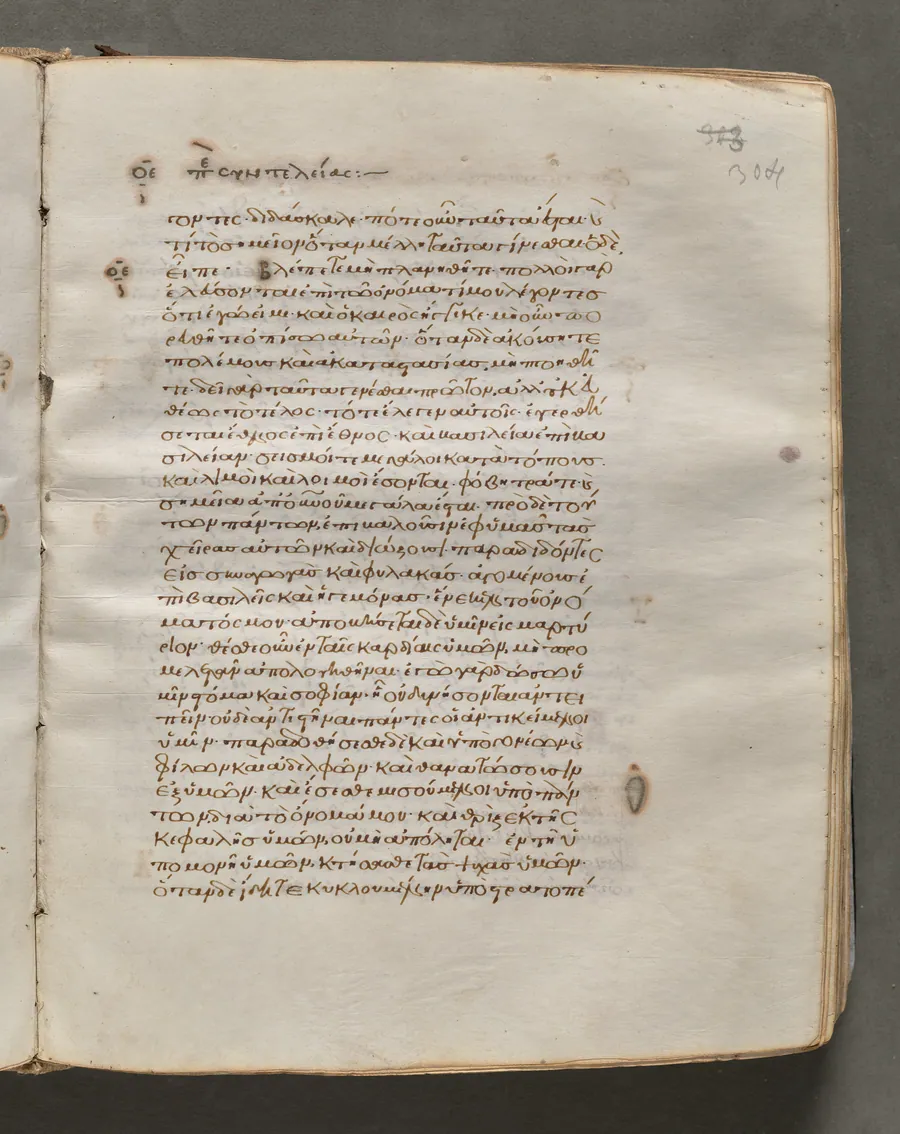 313
304
οε πε συντελείας:—
τοντες· διδάσκαλε· πότε οὖν ταῦτα ἔσται· καὶ
τί τὸ σημεῖον ὅταν μέλλῃ ταῦτα γίνεσθαι· ὁ δὲ
οε εἶπε· Βλέπετε μὴ πλανηθῆτε· πολλοὶ γὰρ
ἐλεύσονται ἐπὶ τῶ ὀνόματί μου λέγοντες
ὅτι ἐγώ εἰμι· καὶ ὁ καιρὸς ἤγγικε· μὴ οὖν πο
ρευθῆτε ὀπίσω αὐτῶν· ὅταν δὲ ἀκούσητε
πολέμους καὶ ἀκαταστασίας, μὴ πτοηθῆ
τε· δεῖ γὰρ ταῦτα γενέσθαι πρῶτον, ἀλλ' οὐκ εὐ
θέως τὸ τέλος· τότε ἔλεγεν αὐτοῖς· ἐγερθή
σεται ἔθνος ἐπὶ ἔθνος· καὶ βασιλεία ἐπὶ βα
σιλείαν· σεισμοί τε μεγάλοι κατὰ τόπους·
καὶ λιμοὶ καὶ λοιμοὶ ἔσονται· φόβητρά τε καὶ
σημεῖα ἀπ' οὐνοῦ μεγάλα ἔσται· πρὸ δὲ τού
των πάντων, ἐπιβαλοῦσιν ἐφ' ὑμᾶς τὰς
χεῖρας αὐτῶν καὶ διώξουσι· παραδιδόντες
εἰς συναγωγὰς καὶ φυλακάς· ἀγομένους ἐ
πὶ βασιλεῖς καὶ ἡγεμόνας· ἕνεκεν τοῦ ὀνό
ματός μου· ἀποβήσεται δὲ ὑμῖν εἰς μαρτύ
ριον· θέσθε οὖν ἐν ταῖς καρδίαις ὑμῶν, μὴ προ
μελετᾶν ἀπολογηθῆναι· ἐγὼ γὰρ δώσω ὑ
μῖν στόμα καὶ σοφίαν· ᾗ οὐ δυνήσονται ἀντει
πεῖν οὐδὲ ἀντιστῆναι πάντες οἱ ἀντικείμενοι
ὑμῖν· παραδοθήσεσθε δὲ καὶ ὑπὸ γονέων καὶ
φίλων καὶ ἀδελφῶν· καὶ θανατώσουσιν
ἐξ ὑμῶν· καὶ ἔσεσθε μισούμενοι ὑπὸ πάν
των διὰ τὸ ὄνομά μου· καὶ θρὶξ ἐκ τῆς
κεφαλῆς ὑμῶν, οὐ μὴ ἀπόληται· ἐν τῆ ὑ
πομονῆ ὑμῶν, κτήσασθε τὰς ψυχὰς ὑμῶν·
ὅταν δὲ ἴδητε κυκλουμένην ὑπὸ στρατοπέ